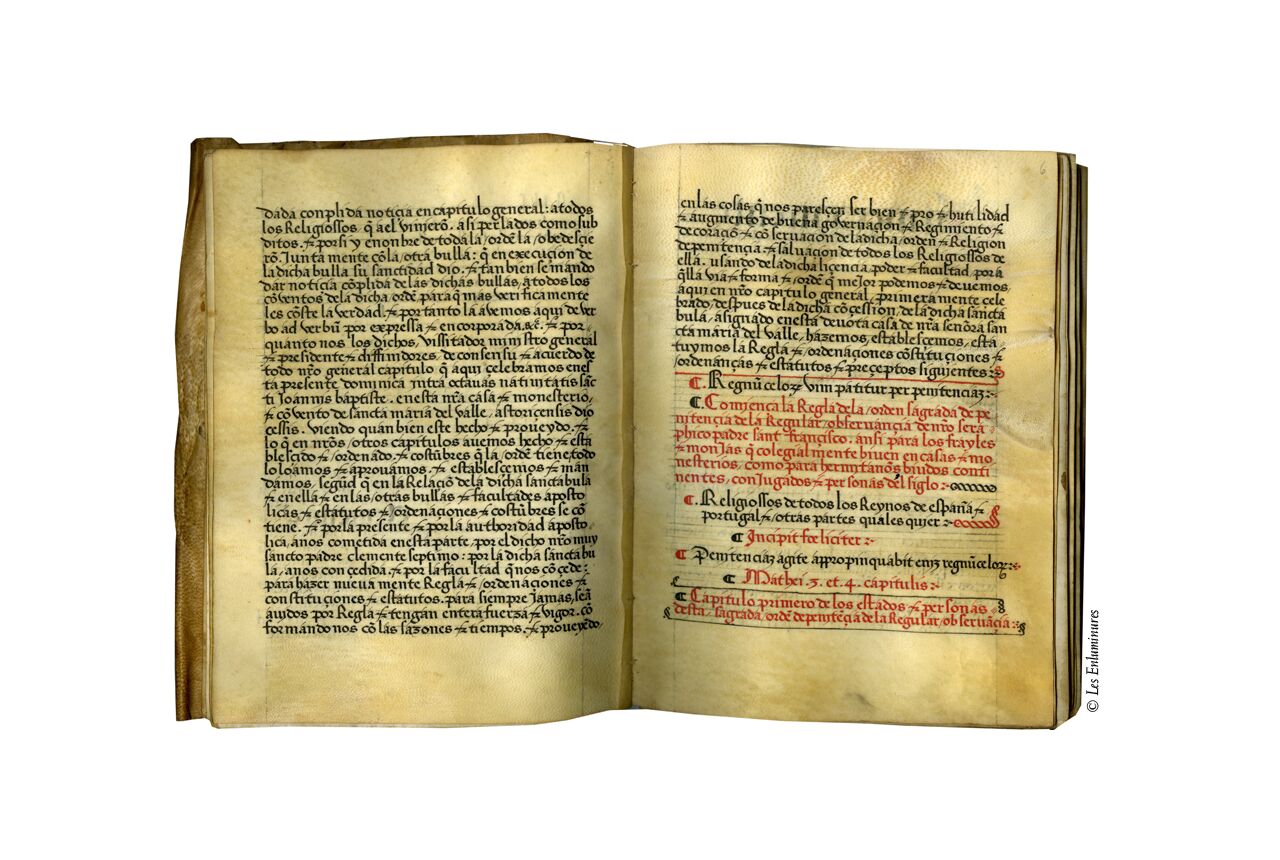 dada conplida noticia en capitulo general: a todos
los Religiossos q̃ a el viniero͂. asi perlados como sub
ditos. ⁊ por si y en onbre de toda la /orde͂ la /obedesçie
ro͂. Junta mente co͂ la /otra bulla: q̃ en exe cucion de
la dicha bulla su sanctidad dio. ⁊ tan bien se mando
dar noticia co͂plida de las dichas bullas, a todos los
co͂ventos de la dicha orde͂. para q̃ mas verifica mente
les co͂ste la verdad. ⁊ por tanto la avemos aqui de ver
bo ad verbu͂ por expressa ⁊ en corporada. &c̃. ⁊ por
quanto nos los dichos, vissitador ministro general
⁊ presidente ⁊ diffinidores, de consensu ⁊ acuerdo de
todo nr̃o general capitulo q̃ aqui celebramos en es
ta presente dominica intra octavas nativitatis sa͂c
ti Joannis baptiste. en esta nr̃a casa ⁊ monesterio,
⁊ co͂vento de sancta maria del valle, astoricensis dio
cessis. viendo quan bien este hecho ⁊ proveydo. ⁊
lo q̃ en nr̃os /otros capitulos avemos hecho ⁊ esta
blescido ⁊ /ordenado. ⁊ costu͂bres q̃ la /orde͂ tiene, todo
lo loamos ⁊ aprovamos. ⁊ establescemos ⁊ man
damos, segu͂d q̃ en la Relacio͂ de la dicha sancta bula
⁊ en ella ⁊ en las /otras bullas ⁊ facultades aposto
licas, ⁊ estatutos ⁊ /ordenaçiones ⁊ costu͂bres se co͂
tiene. ⁊ por la presente ⁊ por la authoridad aposto
lica, a nos cometida en esta parte, por el dicho nr̃o muy
sancto padre clemente septimo: por la dicha sancta bu
la, a nos con çedida. ⁊ por la facultad q̃ nos co͂çede:
para hazer nueva mente Regla ⁊ /ordenaçiones ⁊
constituçiones ⁊ estatutos. para siempre jamas, sea͂
avidos por Regla ⁊ tengan entera fuerza ⁊ vigor. co͂
formando nos co͂ las sazones ⁊ tiempos. ⁊ proveye͂do
6
en las cosas q̃ nos paresçen ser bien ⁊ pro ⁊ hutilidad
⁊ augmento de buena governaçion ⁊ Regimiento ⁊
de coraçio͂ ⁊ co͂servaçion de la dicha /orden ⁊ Religion
de penitençia. ⁊ salvaçion de todos los Religiosos de
ella. usando de la dicha liçençia poder ⁊ facultad, por a
q̃lla via ⁊ forma ⁊ /orde͂ q̃ mejor podemos ⁊ devemos,
aqui en nr̃o capitulo general, primera mente cele
brado, despues de la dicha co͂çession, de la dicha sancta
bula, asignado en esta devota casa de nr̃a señora san
cta maria del valle, hazemos, establesçemos, esta
tuymos la Regla ⁊ /ordenaçiones co͂stituçiones ⁊
/ordenanças ⁊ estatutos ⁊ preçeptos siguientes:
¶. Regnu͂ celoꝝ vim patitur per penitençiaꝫ:
¶. Comiença la Regla de la /orden sagrada de pe
nitençia de la Regular /observançia de nr̃o sera
phico padre sant françisco. ansi para los frayles
⁊ monjas q̃ colegial mente biven en casas ⁊ mo
nesterios, como para hermitanos biudos conti
nentes, conjugados ⁊ personas del siglo:
¶. Religiossos de todos los Reynos de españa ⁊
portugal ⁊ /otras partes quales quier:
¶ Incipit fœliciter:
¶ Penitençiaꝫ agite appropinquabit eniꝫ regnu͂ celoꝝ:
¶ Mathei. 3. et. 4. capitulis:
¶ Capitulo primero de los estados ⁊ personas
desta sagrada /orde͂ de penite͂çia de la Regular /observa͂çia:
© Les Enluminures